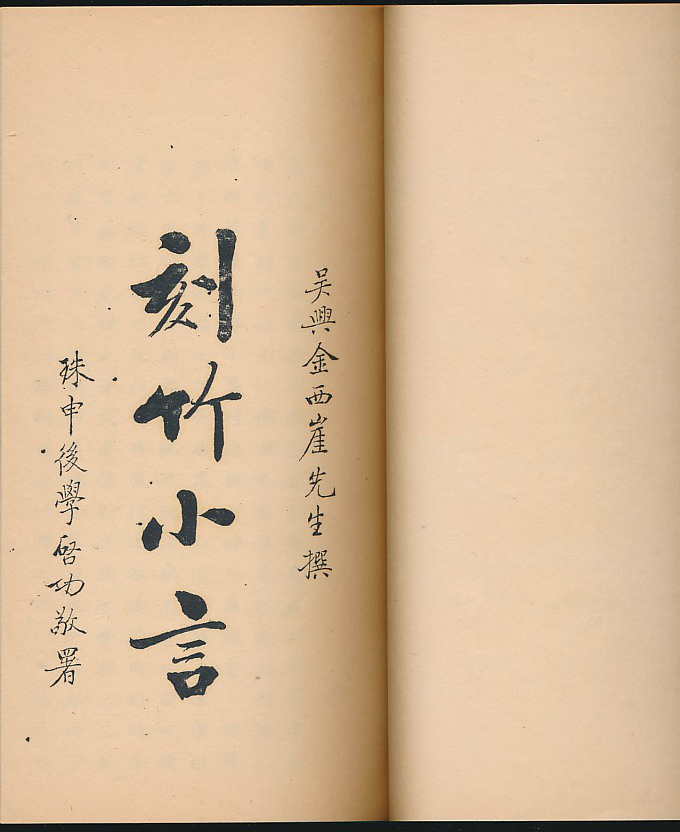 吴興金西崖先生撰
刻竹小言
珠申後學啓功敬署